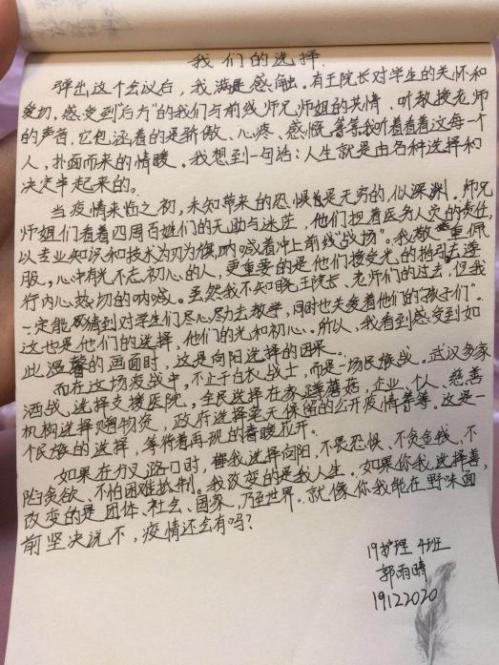 我们的选择
弹出这个会议后，我满是感触。有王院长对学生的关怀和
爱切，感受到“后方”的我们与前线师兄师姐的共情，听教授老师
的声音，它包涵着的是骄傲、心疼、感慨等等我听着看着这每一个
人，扑面而来的情暖。我想到一句话：人生就是由各种选择和
决定串起来的。
当疫情来临之初，未知带来的恐惧是无穷的，似深渊。师兄
师姐们看着四周百姓们的无助与迷茫，他们担着医务人员的责任，
以专业知识和技术为刃为旗，呐喊着冲上前线“战场”。我敬重佩
服，心中有光不忘初心的人，更重要的是他们接受光的指引去遵
行内心热切的呐喊。虽然我不知晓王院长、老师们的过去，但我
一定能猜到对学生们尽心尽力去教学，同时也关爱着他们的“孩子们”。
这也是他们的选择，他们的光和初心。所以，我看到感受到如
此温馨的画面时，这是向阳选择的因果。
而在这场疫战中，不止于白衣战士，而是一场民族战，武汉多家
酒店选择支援医院，全民选择在家蹲蘑菇，企业、个人、慈善
机构选择赠物资，政府选择毫无保留的公开疫情等等。这是一
个民族的选择，等待着再现的春暖花开。
如果在分叉路口时，我选择向阳，不畏恐惧、不贪金钱、不
陷贪欲、不怕困难抉制。我改变的是我人生。如果你我选择善，
改变的是团体、社会、国家，乃至世界。就像你我能在“野味”面
前坚决说不，疫情还会有吗？
19护理4班
郭雨晴
19122020